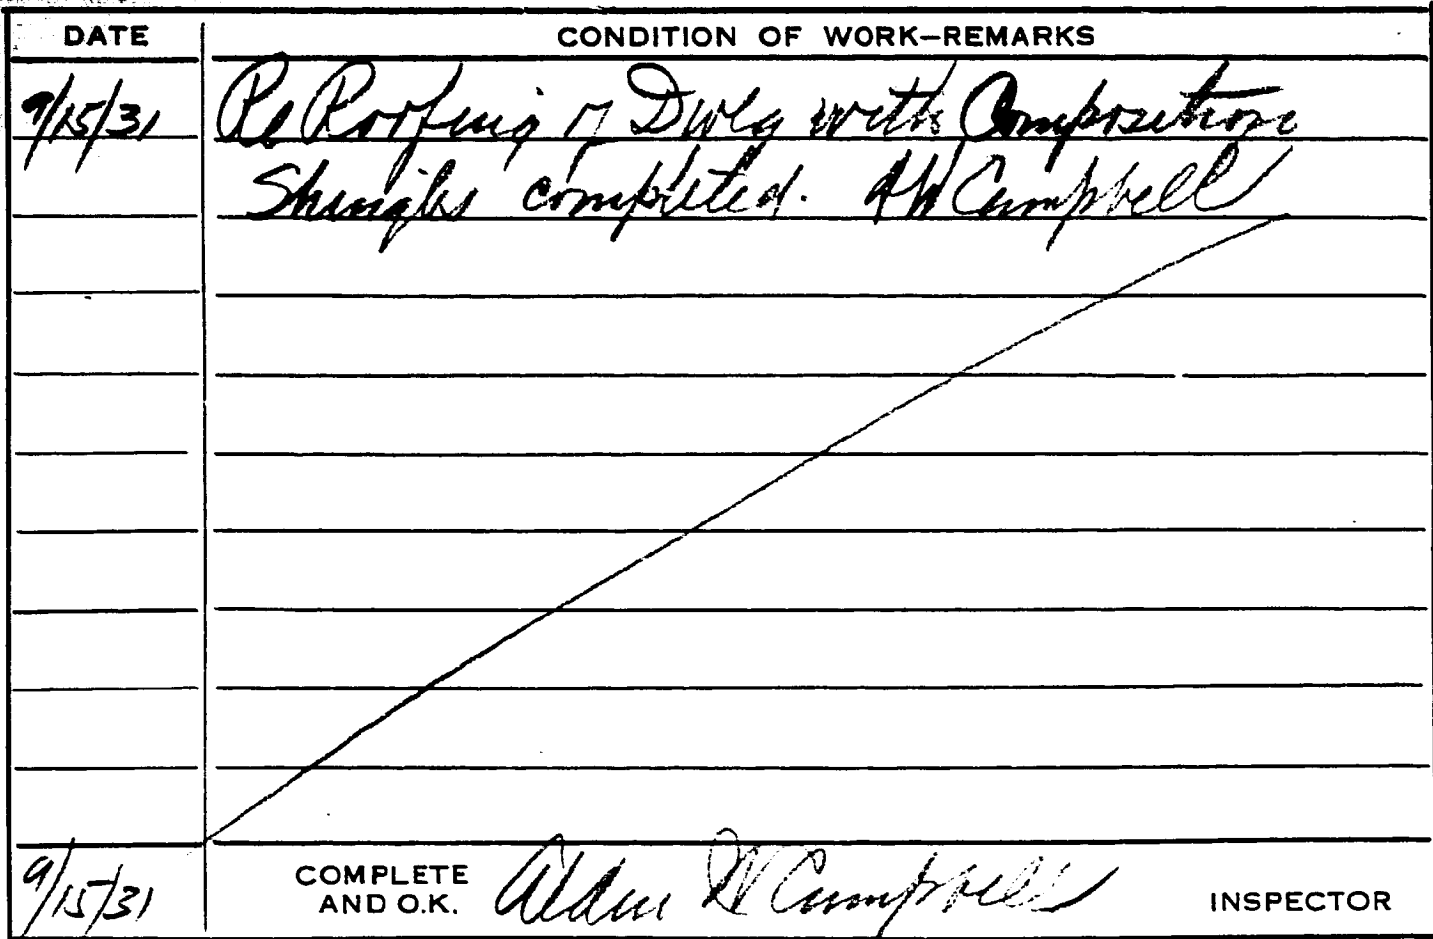 DATE CONDITION OF WORK—REMARKS
9/15/31 Re Roofing of Dwlg with Composition
Shingles completed. AW Campbell
9/15/31 COMPLETE AND O.K. Alden W Campbell INSPECTOR